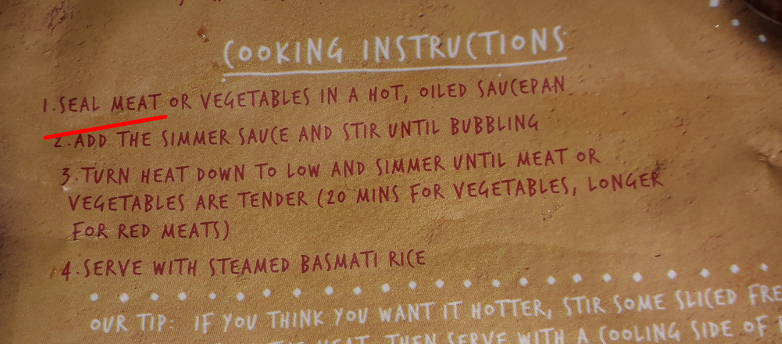 COOKING INSTRUCTIONS
1. SEAL MEAT OR VEGETABLES IN A HOT, OILED SAUCEPAN
2. ADD THE SIMMER SAUCE AND STIR UNTIL BUBBLING
3. TURN HEAT DOWN TO LOW AND SIMMER UNTIL MEAT OR
VEGETABLES ARE TENDER (20 MINS FOR VEGETABLES, LONGER
FOR RED MEATS)
4. SERVE WITH STEAMED BASMATI RICE
OUR TIP: IF YOU THINK YOU WANT IT HOTTER, STIR SOME SLICED FRE
HEAT, THEN SERVE WITH A COOLING SIDE OF